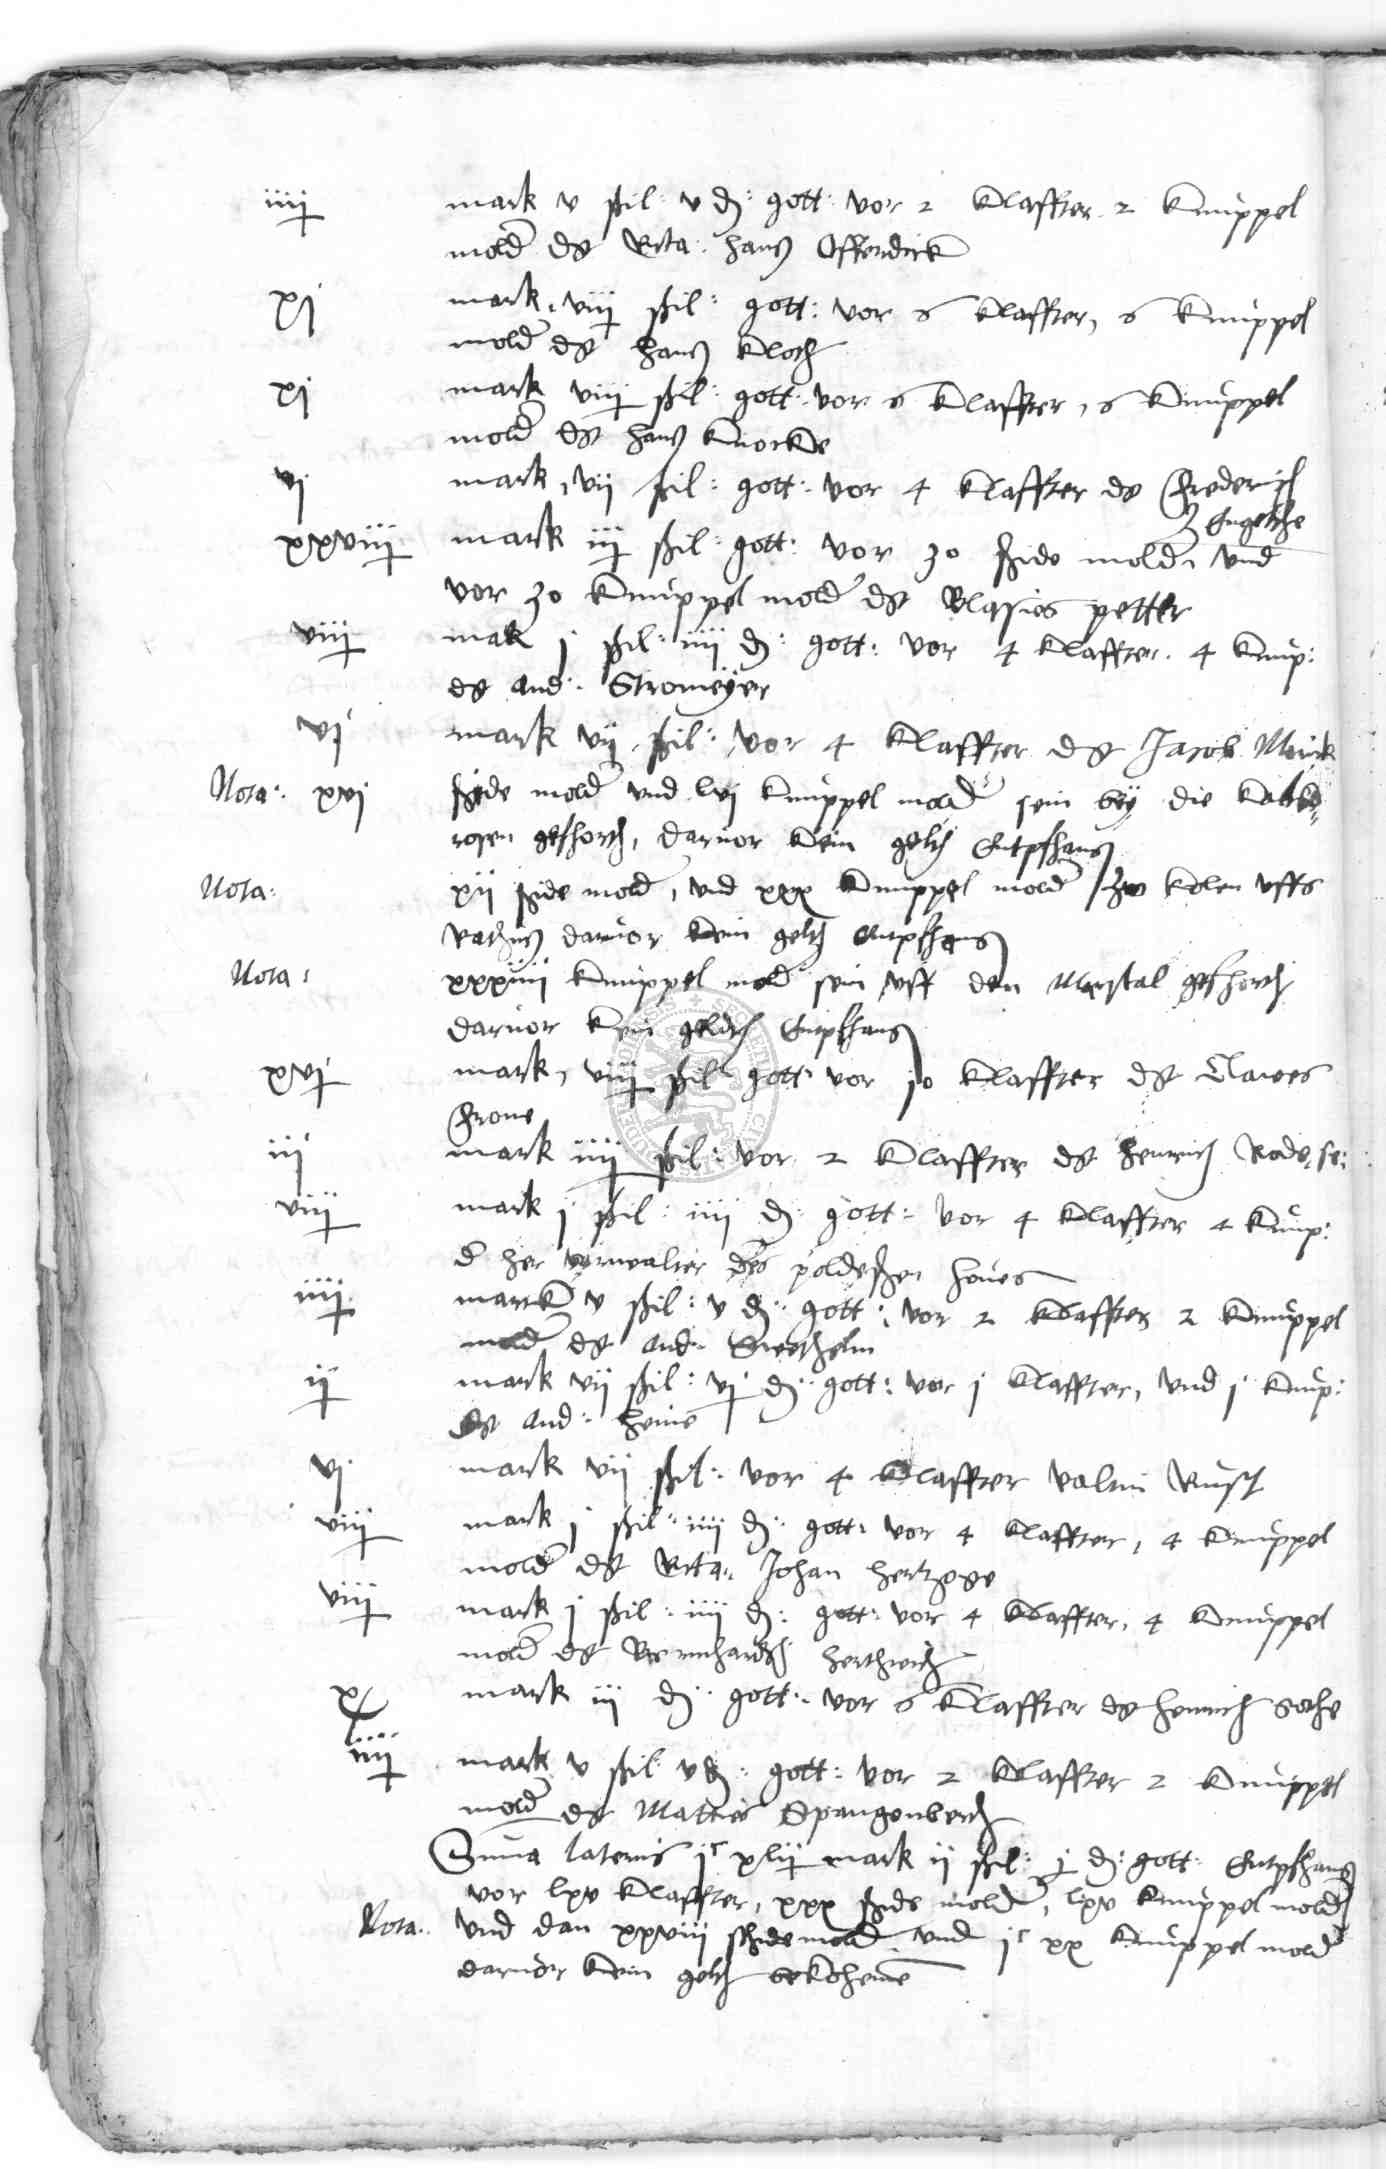 iiij mark v ßil: v d: gott: vor 2 Klaffter 2 Knuppel
mold ds Rita: hans Offendirk
xj mark, viij ßil: gott: vor 6 klaffter, 6 Knuppel
mold ds hans Kloth
xj mark viij ßil: gott: vor 6 Klaffter, 6 Knuppel
mold ds hans Knocke
vj mark, vij ßil: gott: vor 4 Klaffter ds Frederich
Engelche
xxviij mark iij ßil: gott: vor 30 ßide mold, vnd
vor 30 Knuppel mold ds Blasios petter
viij mark j ßil: iiij d: gott: vor 4 klaffter. 4 Knup:
ds And: Stromeÿer
vj mark vij ßil: vor 4 Klaffter ds Jacob
Nota: xvj ßide mold vnd lvj Knuppel mold sein beÿ die
rosen gefhorth, daruor kein gelth Entpfhang
Nota: xij ßide mold, vnd xxx Knuppel mold zu kolen vffs
Rathus daruor kein gelth entpfhang
Nota: xxxiiij Knuppel mold sein vff den Marstal gefhorth
daruor kein geldth Entpfhang
xvj mark, viij ßil: gott: vor 10 Klaffter ds Clawes
Frone
iij mark iiij ßil: vor 2 Klaffter ds Henrich Rode, se:
viij mark j ßil: iiij d: gott: vor 4 klaffter 4 Knup:
d her verwalter des poldeßen houes
iiij marck v ßil: v d: gott: vor 2 klaffter 2 Knuppel
mold ds And:
ij mark vij ßil: vj d: gott: vor j klaffter, vnd j Knup:
ds And: heine
vj mark vij ßil: vor 4 Klaffter valtin Rust
viij mark j ßil: iiij d: gott: vor 4 klaffter, 4 Knuppel
mold ds Rita: Johan hertzoge
viij mark j ßil: iiij d: gott: vor 4 klaffter, 4 Knuppel
mold ds Bernhardth herthwich
x mark iij d: gott: vor 6 Klaffter ds henrich Gothe
iiij mark v ßil: v d: gott: vor 2 klaffter 2 Knuppel
mold ds Matties Spangenberch
Suma lateris jc xlij mark ij ßil: j d: gott: Entpfhang
vor lxv klaffter, xxx ßide mold, lxv Knuppel mold
Nota: vnd dan xxviij schidemold vnd jc xx Knuppel mold
daruor kein gelth bekohemē